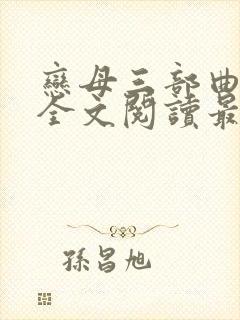 戀母三部曲
全文閱讀最
孫昌旭